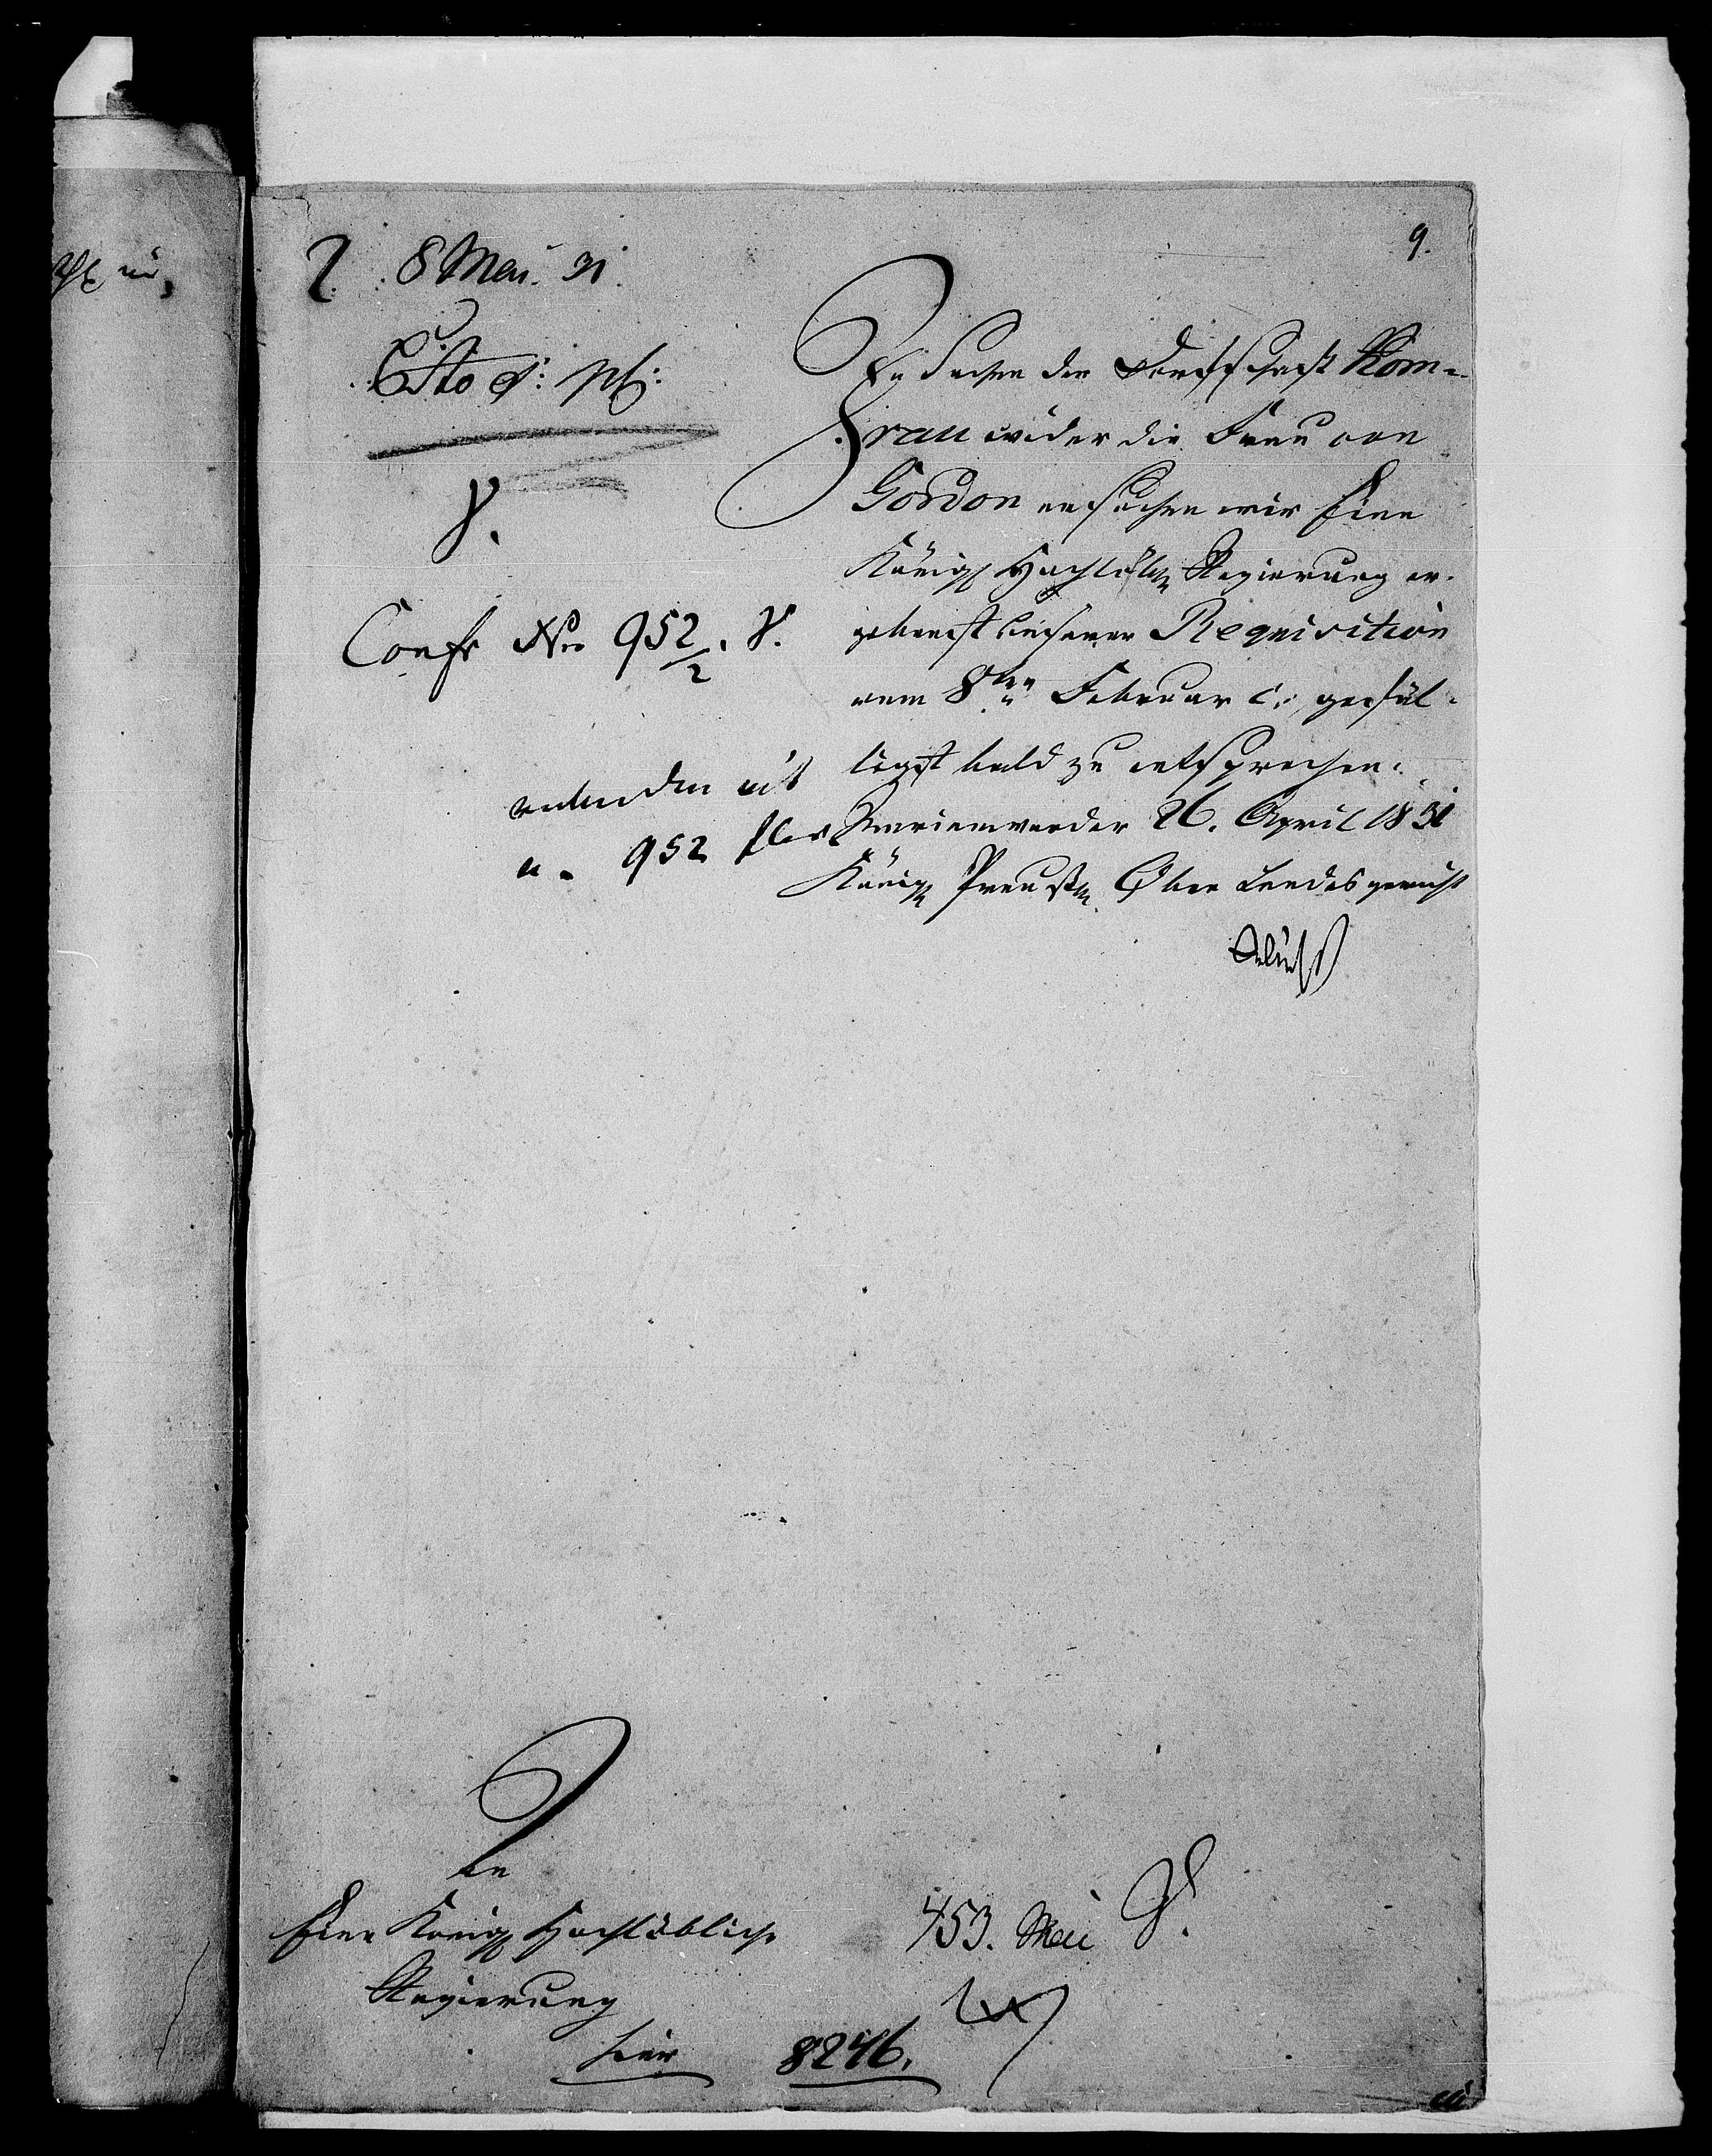 9.
8 Mai. 31.
Cito
V.
Conf. No. 952/2. V.
u. 952
In Sachen der Dorfschaft Kom=
rau wider die Frau von
Gordon ersuchen wir Eine
Königl Hochlöbl Regierung er=
gebenst unserer Requisition
vom 8ten Februar c: gefäl=
ligst bald zu entsprechen.
Marienwerder 26. April 1831
Königl Preuß Ober Landesgericht
An
Eine Königl Hochlöbliche
Regierung
hier
453. Mai V.
8246.